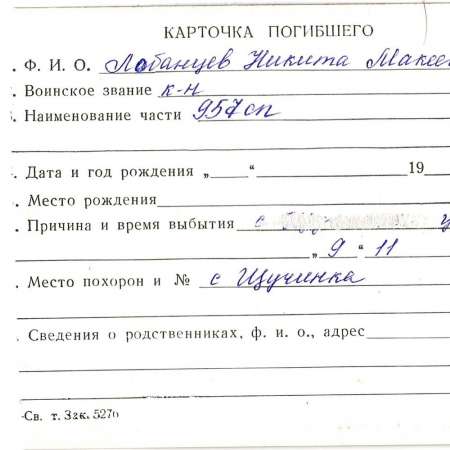 КАРТОЧКА ПОГИБШЕГО
. Ф. И. О. Лобанцев Никита Макее
. Воинское звание к-н
. Наименование части 957 сп
. Дата и год рождения „ “ 19
. Место рождения
. Причина и время выбытия с
„ 9 “ 11
. Место похорон и № с Щучинка
. Сведения о родственниках, ф. и. о., адрес
Св. т. Зак. 527б